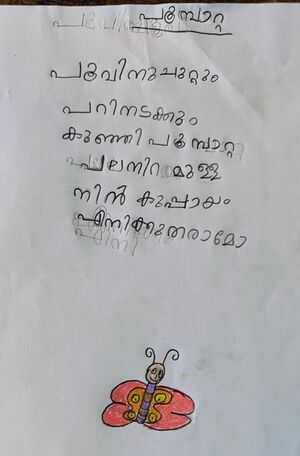 പൂമ്പാറ്റ
പൂവിനുചുറ്റും
പറിനടക്കും
കുഞ്ഞിപൂമ്പാറ്റ
പലനിറമുള്ള
നിൻ കുപ്പായം
എനിക്കുതരാമോ